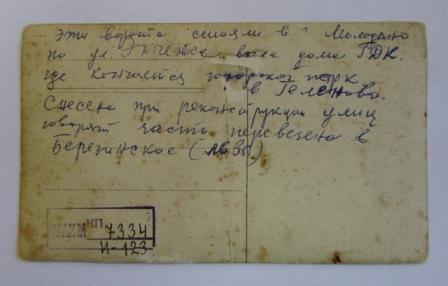 Эти ворота стояли в г. Молодечно
по ул. возле дома ГДК.
где кончается городской парк
в Геленово.
Снесена при реконструкции улиц
говорят часть перевезено в
Березинское
КП 7334
И-123